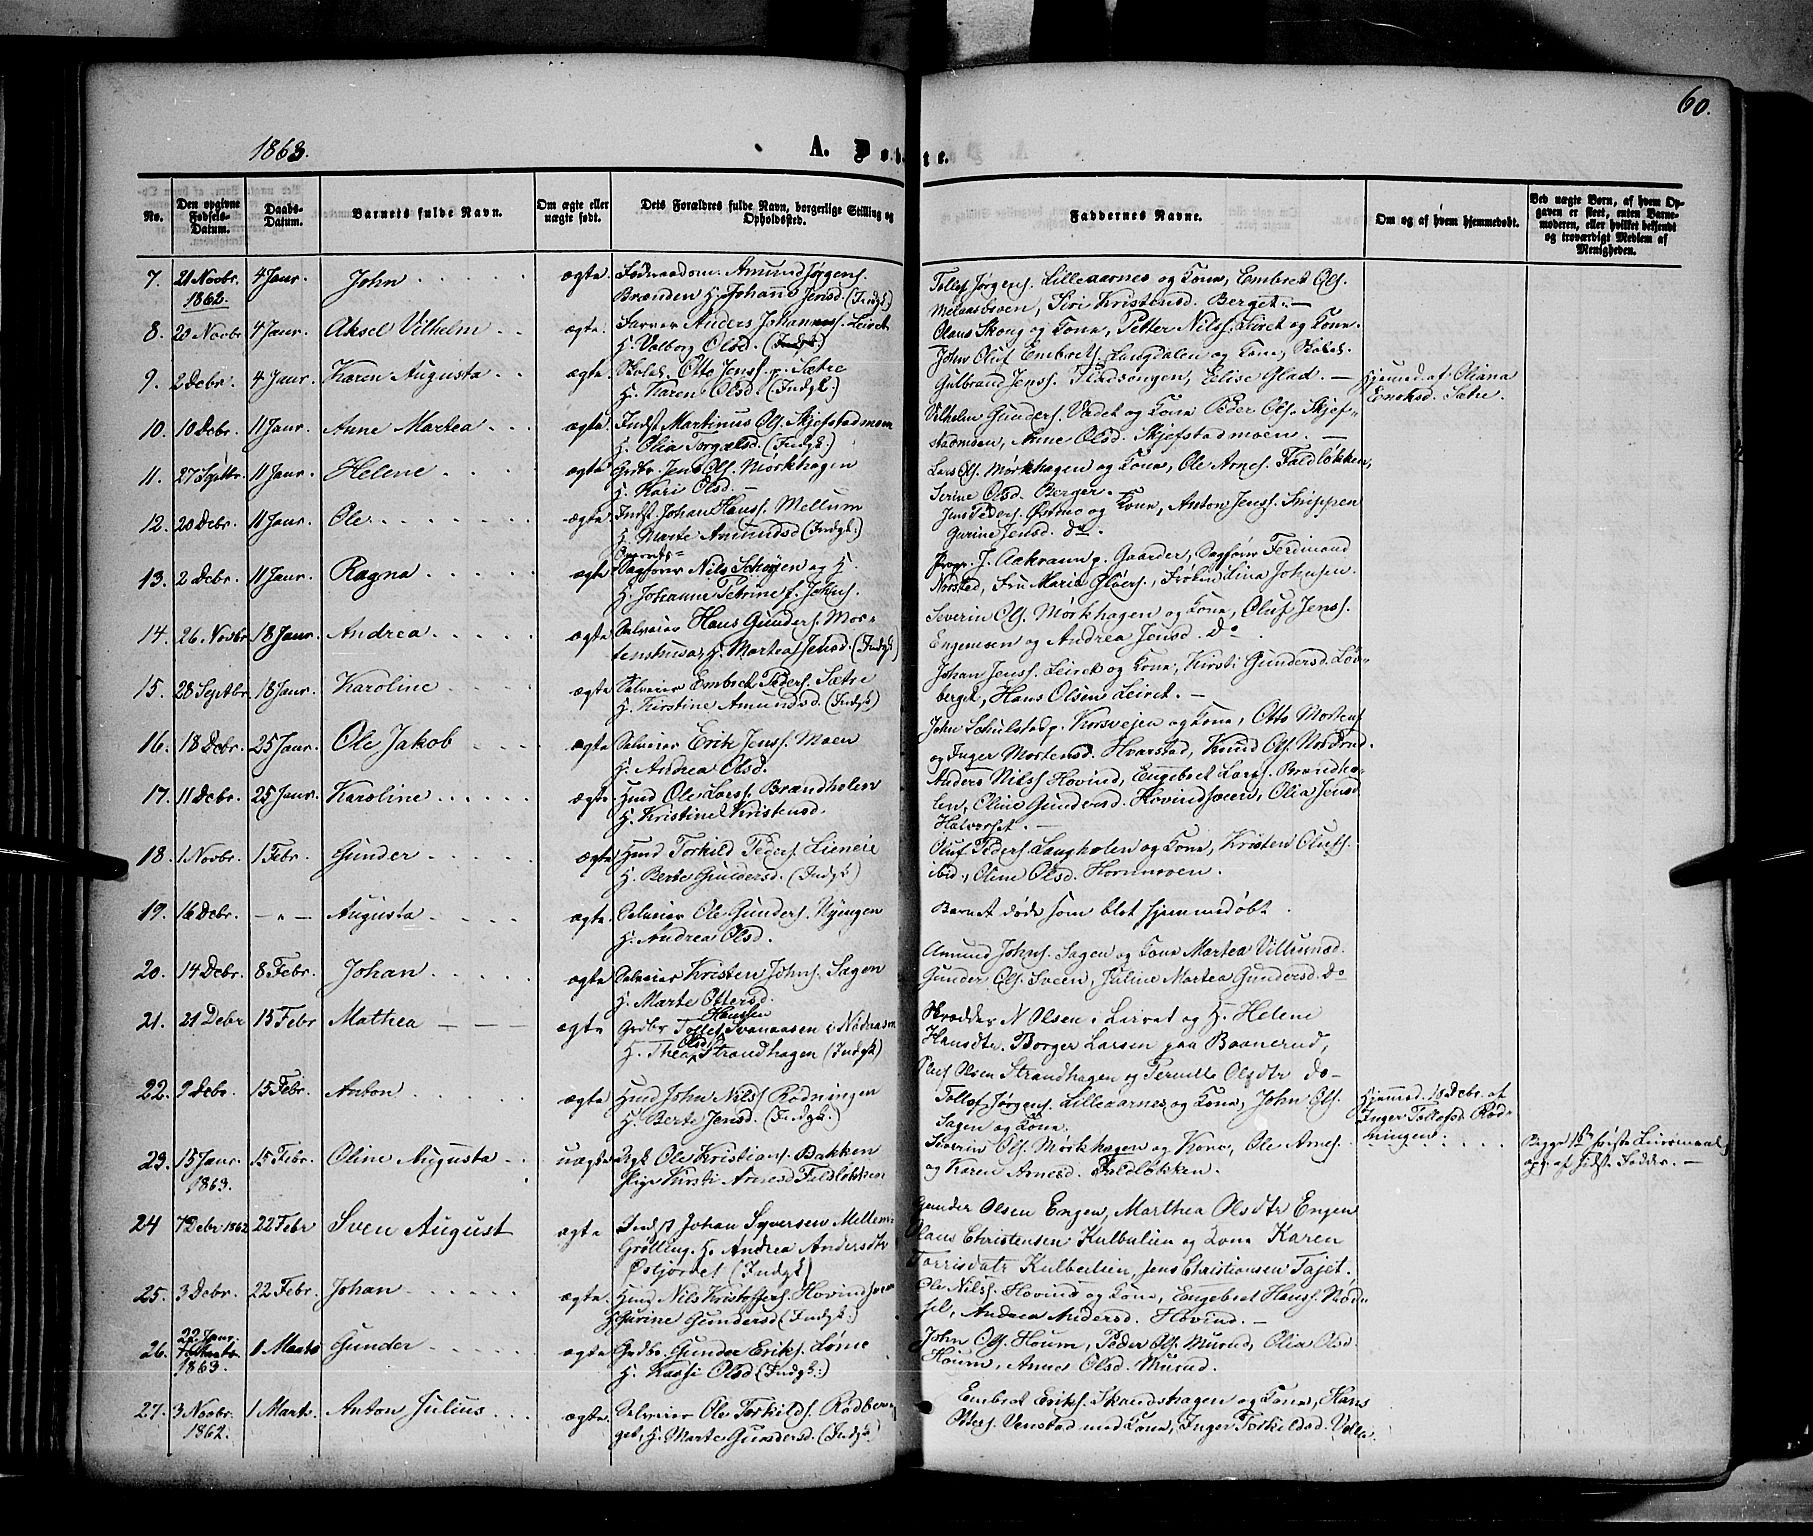 60.
1863.
A. Døbte.
No.
Den opgivne Fødsels-Datum.
Daabs-Datum.
Barnets fulde Navn.
Om ægte eller uægte født.
Dets Forældres fulde Navn, borgerlige Stilling og Opholdssted.
Faddernes Navne.
Om og af hvem hjemmedøbt.
Ved uægte Børn, af hvem Opgaven er skeet, enten Barnemoderen, eller hvilket bekjendt og troværdigt Medlem af Menigheden.
7. 21 Novbr. 1862. 4 Janr. John ægte Føderaadsm. Amund Jørgens.
Brænden H. Johanne Jensd. (Indgk.)
Tollef Jørgens. Lilleaarnes og Kone, Embret Ols.
Melaasbsven, Siri Kristensd. Berget. —
8. 20 Novbr 4 Janr. Aksel Vilhelm ægte. Farver Anders Johannes. Leiret
H. Valborg Olsd. (Indgk.)
Olaus Skoug og Kone, Petter Nilss. Leiret og Kone.
John Oluf Embrets. Langdalen og Kone,
9. 2 Debr. 4 Janr. Karen Augusta ægte. Otto Jenss. p. Sætre
H. Karen Olsd. (Indgk.)
Gulbrand Jenss. Fladsengen, Elise Glad. —
Hjemmed. af Oliana
Sætre.
10. 10 Debr. 11 Janr. Anne Martea ægte Indst Martinus Ols. Skjefstadmoen
H. Olia Torgalsd. (Indgk.)
Vilhelm Gunders. Vadet og Kone Peder Ols. Skjef-
stadmoen, Anne Olsd. Skjefstadmoen. —
11. 27 Septbr. 11 Janr. Helene ægte Grdbr. Jens Ols. Mørkhagen
H. Kari Olsd. —
Lars Ols. Mørkhagen og Kone, Ole Arnes. Faldløkken,
Serine Olsd. Berger. —
12. 20 Debr. 11 Janr. Ole ægte Indst. Johan Hanss. Mellum
H. Marte Amundsd (Indgk.)
Jens Peders. Østmo og Kone, Anton Jenss. Snippen
Gurine Jensd. do.
13. 2 Debr. 11 Janr. Ragna ægte Overrets-
Sagfører Nils Schøyen og H.
H. Johanne Petrine f. Johns.
Propr. J. Aakrann p. Gaarder, Sagfører Ferdinand
Norsted, Fru Maria Øvers., Frøken Lina Johnsen.
14. 26 Novbr 18 Janr. Andrea ægte Selveier Hans Gunders. Mor-
tenshusa, H. Martea Jensd. (Indgk)
Severin Ols. Mørkhagen og Kone, Oluf Jenss.
Engemoen og Andrea Jensd. do.
15. 28 Septbr 18 Janr. Karoline ægte Selveier Embret Peders. Sætre
H. Kirstine Amundsd. (Indgk)
Johan Jenss. Leiret og Kone, Kirsti Gundersd. Løv-
berget, Hans Olsens Leiret. —
16. 18 Debr. 25 Janr. Ole Jakob ægte. Selveier Erik Jenss. Moen
H. Andrea Olsd.
John Schulstad p. Korsvejen og Kone, Otto Mortens
og Inger Mortensd. Hvarstad, Knud Ols. Nordrud.
17. 11 Debr. 25 Janr. Karoline ægte. Hmd Ole Larss. Brændholen
H. Kristine Kristensd.
Anders Nilss. Hovind, Engebret Larss. Brændho-
len, Oline Gundersd. Hovindsveen, Olia Jensd
Halvorset. —
18. 1 Novbr. 1 Febr. Gunder ægte Hmd Torkild Peders. Lieneie
H. Berte Guldersd. (Indgk.)
Oluf Peders. Langholen og Kone, Kristen Olufs.
ibid., Oline Olsd. Hornmoen.
19. 16 Debr. — „ — Augusta ægte Selveier Ole Gunders. Nyengen
H. Andrea Olsd.
Barnet døde som blot hjemmedøbt.
20. 14 Debr. 8 Febr. Johan ægte Selveier Kristen Johns. Sagen
H. Marte Ottersd.
Amund Johns. Sagen og Kone Martea Villumsd.
Gunder Ols. Sveen, Juline Martea Gundersd. do
21. 21 Debr 15 Febr Mathea ægte Grdbr Tollef Hanssen Svenaasen i Nordaasen
H. Thea Olsd. Strandhagen (Indgk)
Skrædder N Olsen i Leiret og H. Helene
Hansdtr. Borger Larsen paa Baanerud,
Oluf Olsen Strandhagen og Pernille Olsdtr do-
22. 9 Debr. 15 Febr. Anton ægte Hmd John Nilss Rødningen
H. Berte Jensd. (Indgk.)
Tollef Jørgens. Lilleaarnes og Kone, John Ols.
Sagen og Kone.
Hjemmed. 18 Debr. af
Inger Tollefsd. Rød-
ningen.
23. 15 Janr. 1863. 15 Febr. Oline Augusta uægte Ungk Ole Kristians. Bakken
Pige Kirsti Arnesd Faldløkken
Severin Ols. Mørkhagen og Kone, Ole Arnes.
og Karen Arnesd. Faldløkken.
Begges 1ste første Leiermaal,
opg. af sidste Fadder. —
24 7 Debr 1862 22 Febr Sven August ægte. Indst Johan Syversen Mellem-
Grølling. H. Andrea Andersdtr
Østjordet (Indgk)
Gunder Olsen Engen, Marthea Olsdtr Engen
Olaus Christensen Kulbulien og Kone Karen
Torrisdatr Kulbulien, Jens Christiansen Tajet.
25. 3 Debr. 22 Febr. Johan ægte. Hmd Nils Kristoffers. Hovindsveen
H. Gurine Gundersd. (Indgk.)
Ole Nilss. Hovind og Kone, Engebret Hanss. Nord-
set, Andrea Andersd. Hovind. —
26. 22 Janr. 1863. 1 Marts Gunder ægte. Grdbr. Gunder Eriks. Løvne
H. Kassi Olsd (Indgk.)
John Ols. Houm, Peder Ols. Murud, Olia Olsd
Houm, Anne Olsd. Murud.
27. 3 Novbr. 1862. 1 Marts. Anton Julius ægte Selveier Ole Torkilds. Rødber-
get, H. Marte Gundersd. (Indgk.)
Embret Eriks. Strandhagen og Kone, Hans
Otters. Venstad med Kone, Inger Torkildsd.